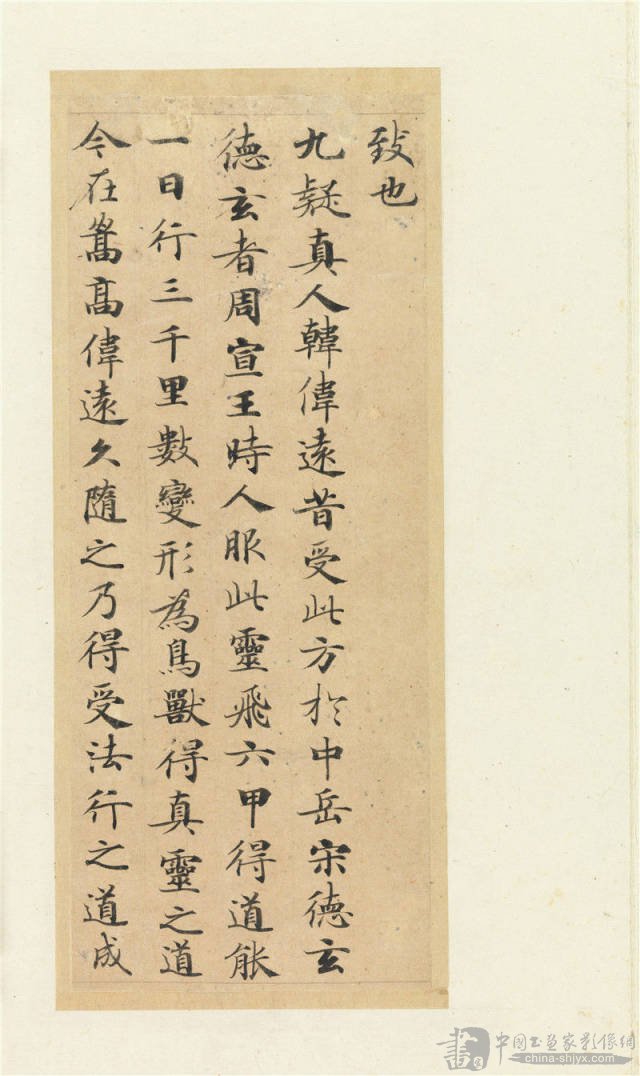 致也
九疑真人韓偉遠昔受此方於中岳宋德玄
德玄者周宣王時人服此靈飛六甲得道能
一日行三千里數變形為鳥獸得真靈之道
今在嵩高偉遠久隨之乃得受法行之道成
書 中國书画家影像網
china-shjyx.com